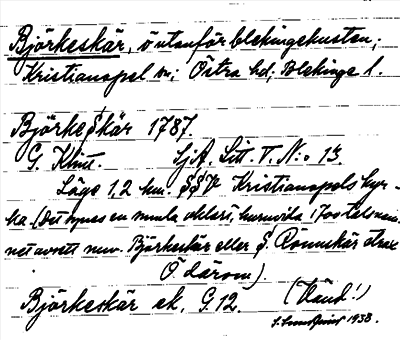 Björkeskär, ö utanför blekingekusten;
Kristianopel sn; Östra hd; Blekinge l.
Björkeskär 1787.
G. Klint. SjA. Litt. V. N:o 13.
Läge 1,2 km. SSV Kristianopels kyr-
ka. (Det synes en smula oklart, huruvida 1700 talsnam-
net avsett nuv. Björkeskär eller S. Rönnskär strax
Ö därom).
Björkeskär ek. G. 12. (Känd!)
1938.